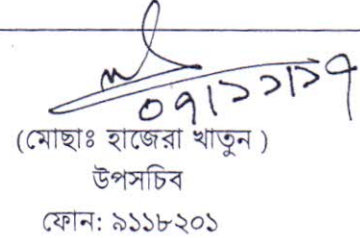 ০৭/১১/১৭
(মোছাঃ হাজেরা খাতুন )
উপসচিব
ফোন: ৯১১৮২০১